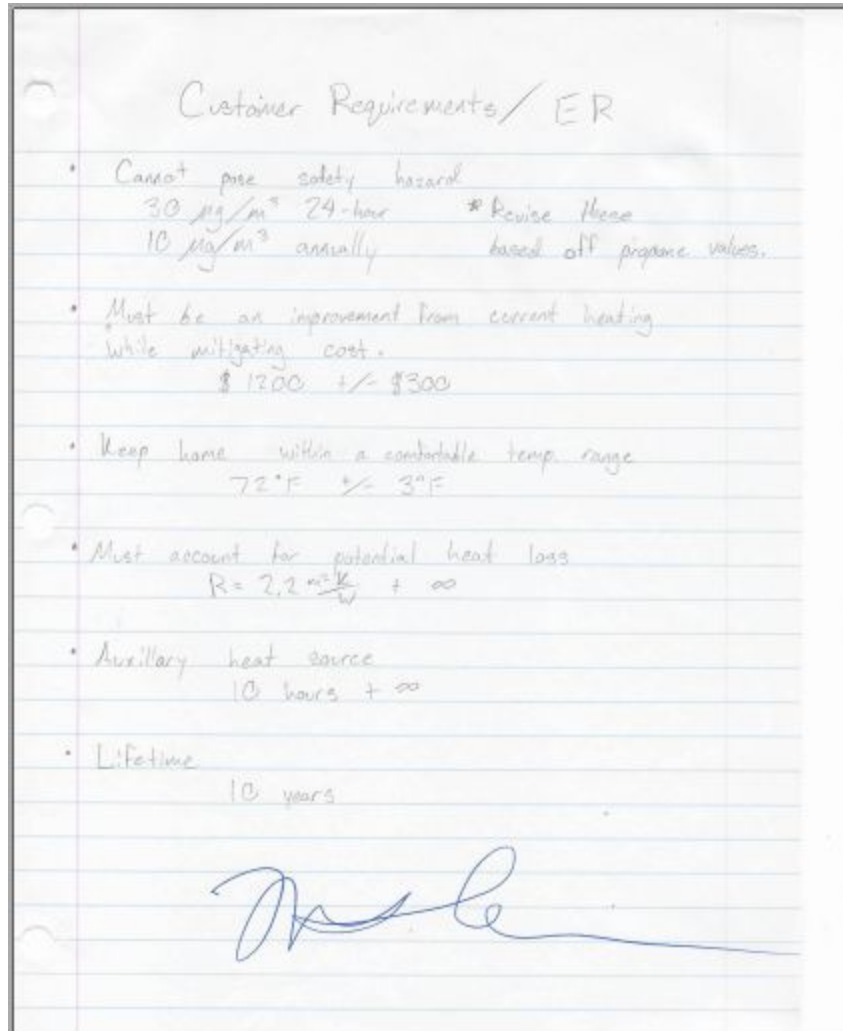 Customer Requirements/ ER
• Cannot pose safety hazard
30 µg/m³ 24-hour * Revise these
10 µg/m³ annually based off propane values.
• Must be an improvement from current heating
while mitigating cost.
$1200 +/- $300
• Keep home within a comfortable temp. range
72°F +/- 3°F
• Must account for potential heat loss
R= 2.2 m²K/W + ∞
• Auxillary heat source
10 hours + ∞
• Lifetime
10 years